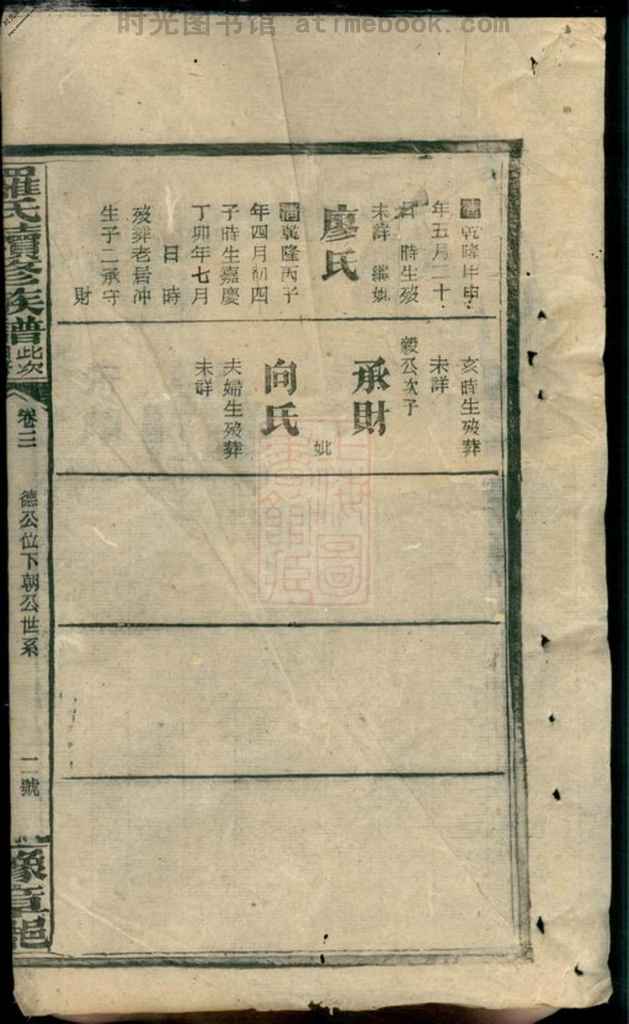 时光图书馆 atimebook.com
清乾隆甲申
年五月二十
日 時生歿
未詳 繼妣
廖氏
清乾隆丙子
年四月初四
子時生嘉慶
丁卯年七月
日 時
歿葬老居冲
生子二承守
財
亥時生歿葬
未詳
毅公次子
承財
妣
向氏
夫婦生歿葬
未詳
羅氏續修族譜
此次
卷三
德公位下朝公世系
二號
豫章